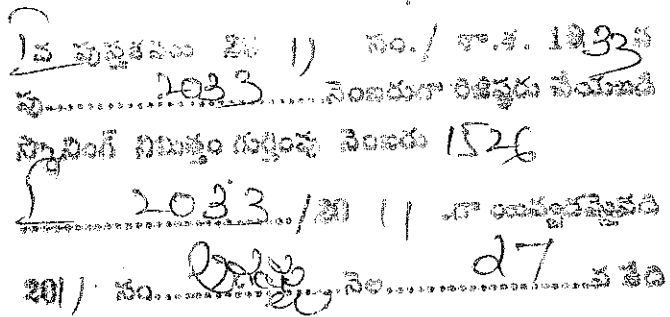 1వ పుస్తకము 2011 సం./ శా.శ. 1933 వ
పు.......2033.......నెంబరుగా రిజిష్టరు చేయబడి
స్కానింగ్ నిమిత్తం గుర్తింపు నెంబరు 1526
1 2033/2011 గా ఇవ్వబడ్డమైనది
2011 సం. ఆగష్టు నెల 27 వ తేది